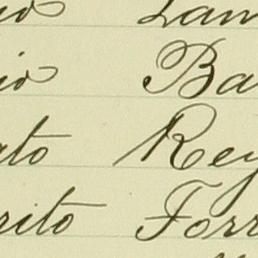 io Lam
io Ba
ato Rey
rito Forr